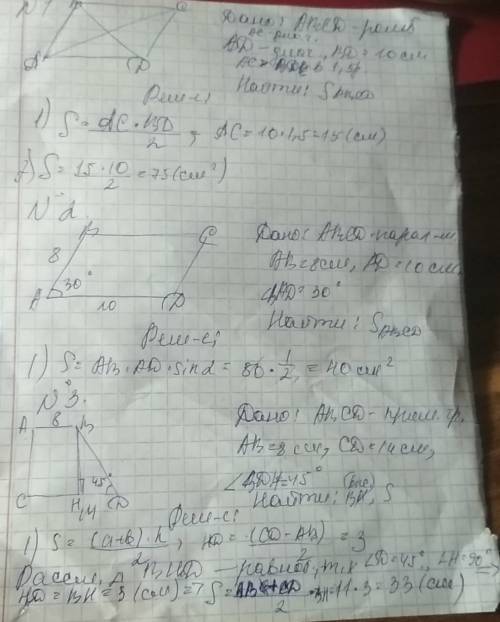 N 1
C
A
D
Дано: ABCD - ромб
AC - диаг.
BD - диаг., BD = 10 см
Найти: S ABCD
Реш-е:
1) S = AC · BD / 2, AC = 10 · 1,5 = 15 (см)
2) S = 15 · 10 / 2 = 75 (см²)
N 2.
B
C
8
A
30°
10
D
Дано: ABCD - парал-м.
AB = 8 см, AD = 10 см.
∠BAD = 30°
Найти: S ABCD
Реш-е:
1) S = AB · AD · sin α = 80 · 1/2 = 40 см²
N 3.
A
8
B
45°
C
H
14
D
Дано: ABCD - прям. тр.
AB = 8 см, CD = 14 см,
∠BDH = 45°
Найти: BH, S
Реш-е:
1) S = (a+b) · h / 2, HD = (CD - AB) / 2 = 3
Рассм. △BHD - равноб, т.к ∠D = 45°, ∠H = 90° =>
HD = BH = 3 (см) => S = AB + CD / 2 · BH = 11 · 3 = 33 (см)